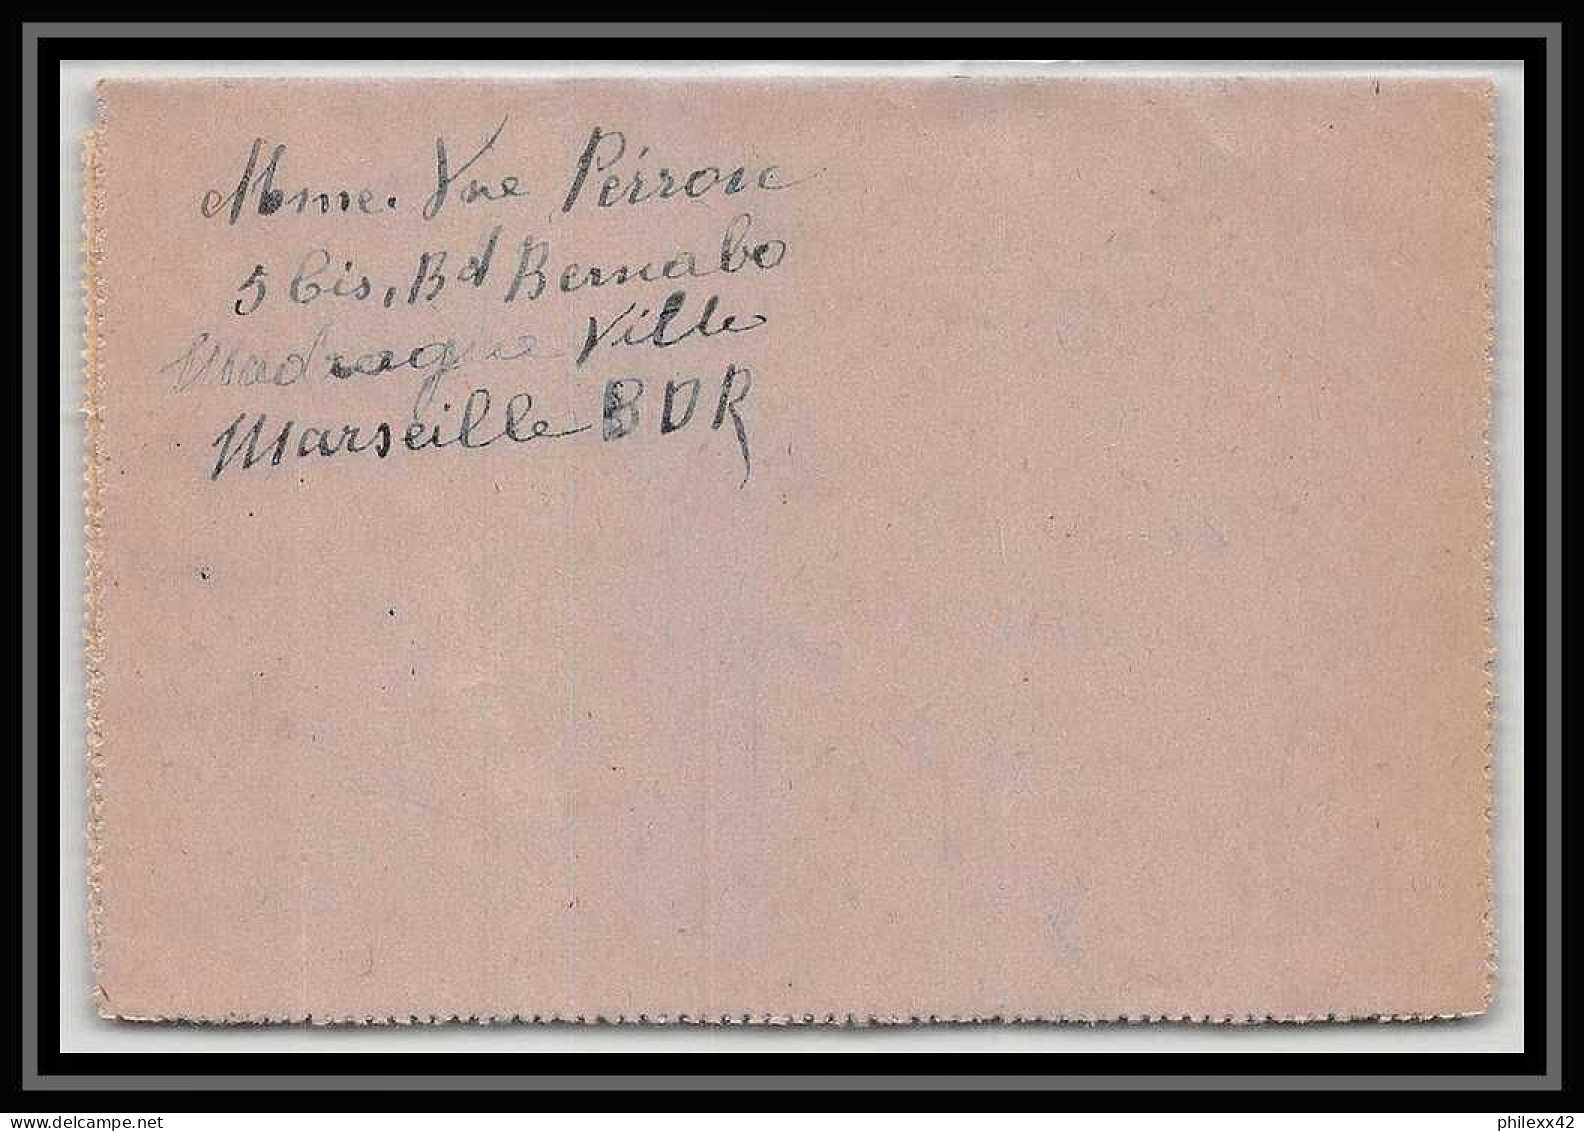 Mme. Vve Péirone
5 bis, Bd Bernabo
Madrague Ville
Marseille BDR
www.delcampe.net
philexx42